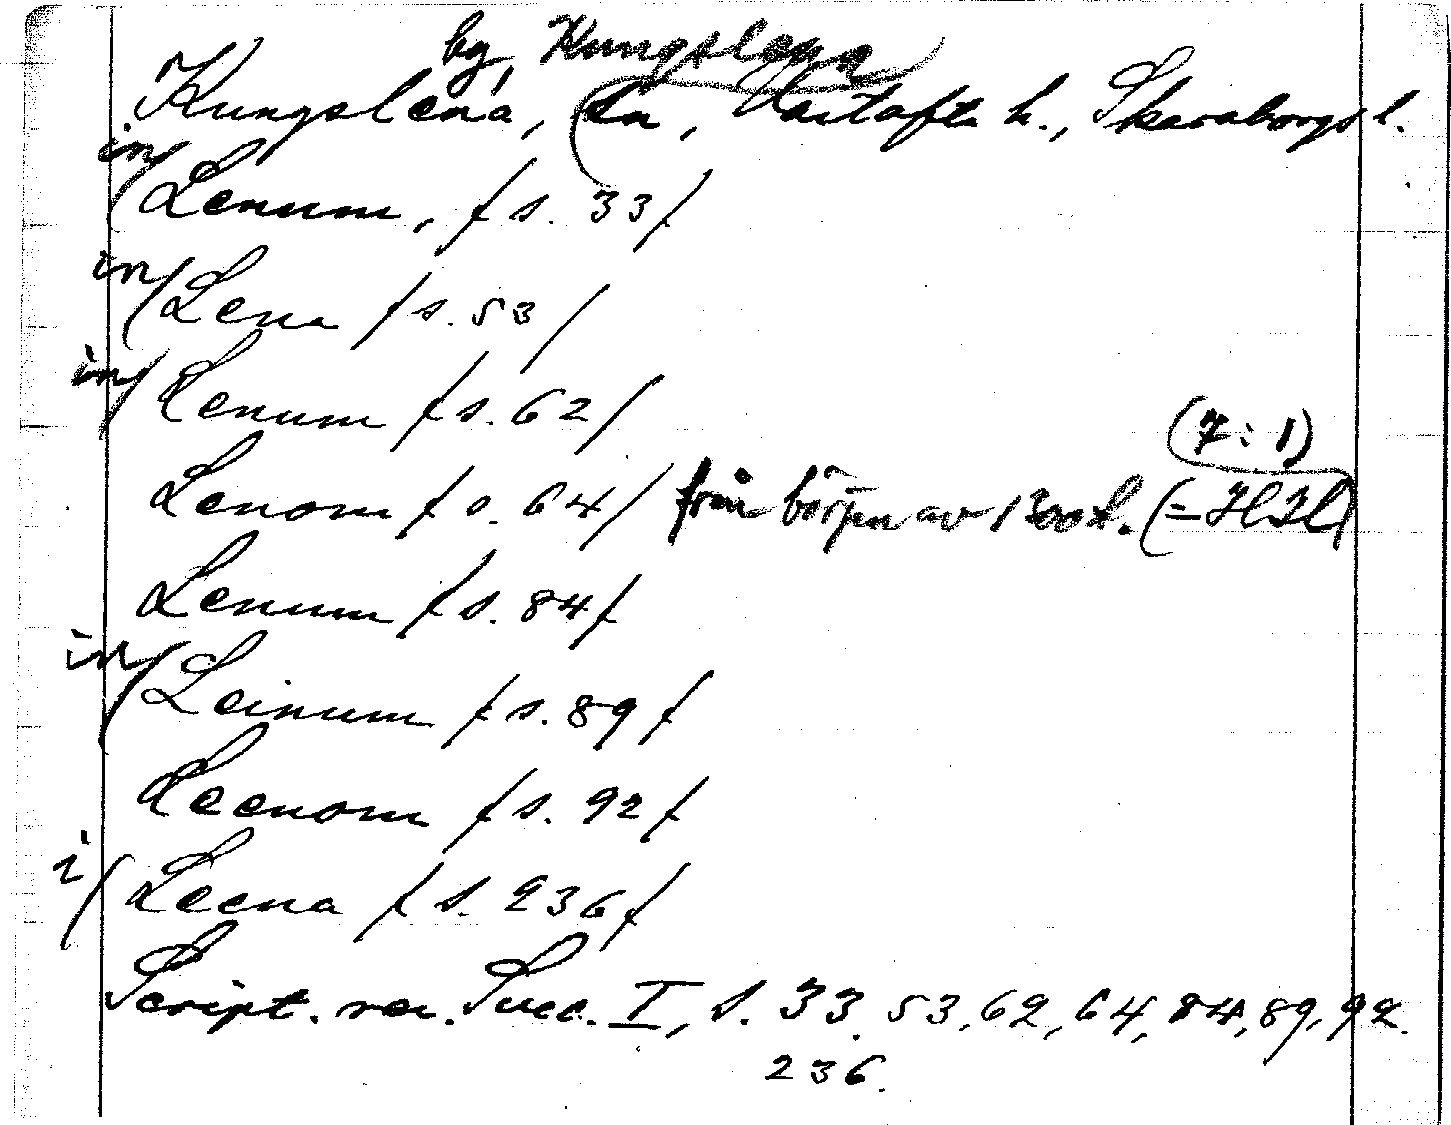 by, Kungslena
Kungslena, sn, Vartofta h., Skaraborgs l.
in/ Lenum, / s. 33 /
in/ Lena / s. 53 /
in/ Lenum / s. 62 /
(7:1)
Lenom / s. 64 / från början av 1300 t. (=HSH)
Lenum / s. 84 /
in/ Leinum / s. 89 /
Leenom / s. 92 /
i/ Leena / s. 236 /
Script. rer. Svec. I, s. 33, 53, 62, 64, 84, 89, 92.
236.